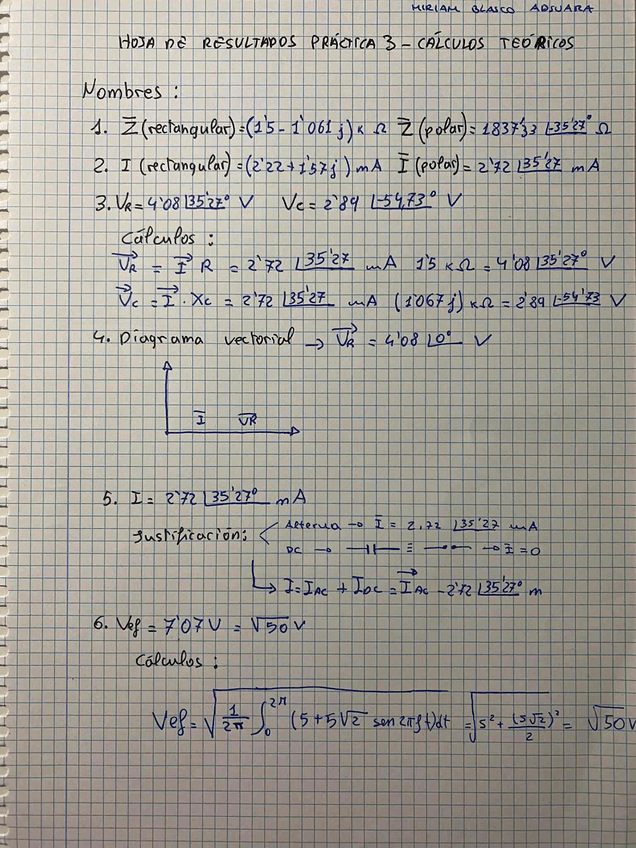 MIRIAM BLASCO ADSUARA
HOJA DE RESULTADOS PRÁCTICA 3 – CÁLCULOS TEÓRICOS
Nombres :
1. Z̅ (rectangular)=(1'5 - 1'061 j) k Ω Z̅ (polar)= 1837'33 ∠-35'27° Ω
2. I (rectangular)=(2'22+1'57j) mA I̅ (polar)= 2'72 ∠35'27 mA
3. VR=4'08 ∠35'27° V Vc= 2'89 ∠-54,73° V
Cálculos :
V⃗R = I⃗ R = 2'72 ∠35'27 mA 1'5 kΩ = 4'08 ∠35'27° V
V⃗c = I⃗ . Xc = 2'72 ∠35'27 mA (1'067j) kΩ = 2'89 ∠-54'73 V
4. Diagrama vectorial → V⃗R = 4'08 ∠0° V
I̅ V̅R
5. I = 2'72 ∠35'27° mA
Justificación: Alterna → I̅ = 2,72 ∠35'27 mA
DC → ≡ → I̅ = 0
I = IAC + IDC = I⃗AC - 2'72 ∠35'27° m
6. Vef = 7'07 V = √50 V
Cálculos :
Vef = √(1/2π ∫₀^2π (5+5√2 sen 2πft)dt = √(5² + (5√2)²/2 = √50 V